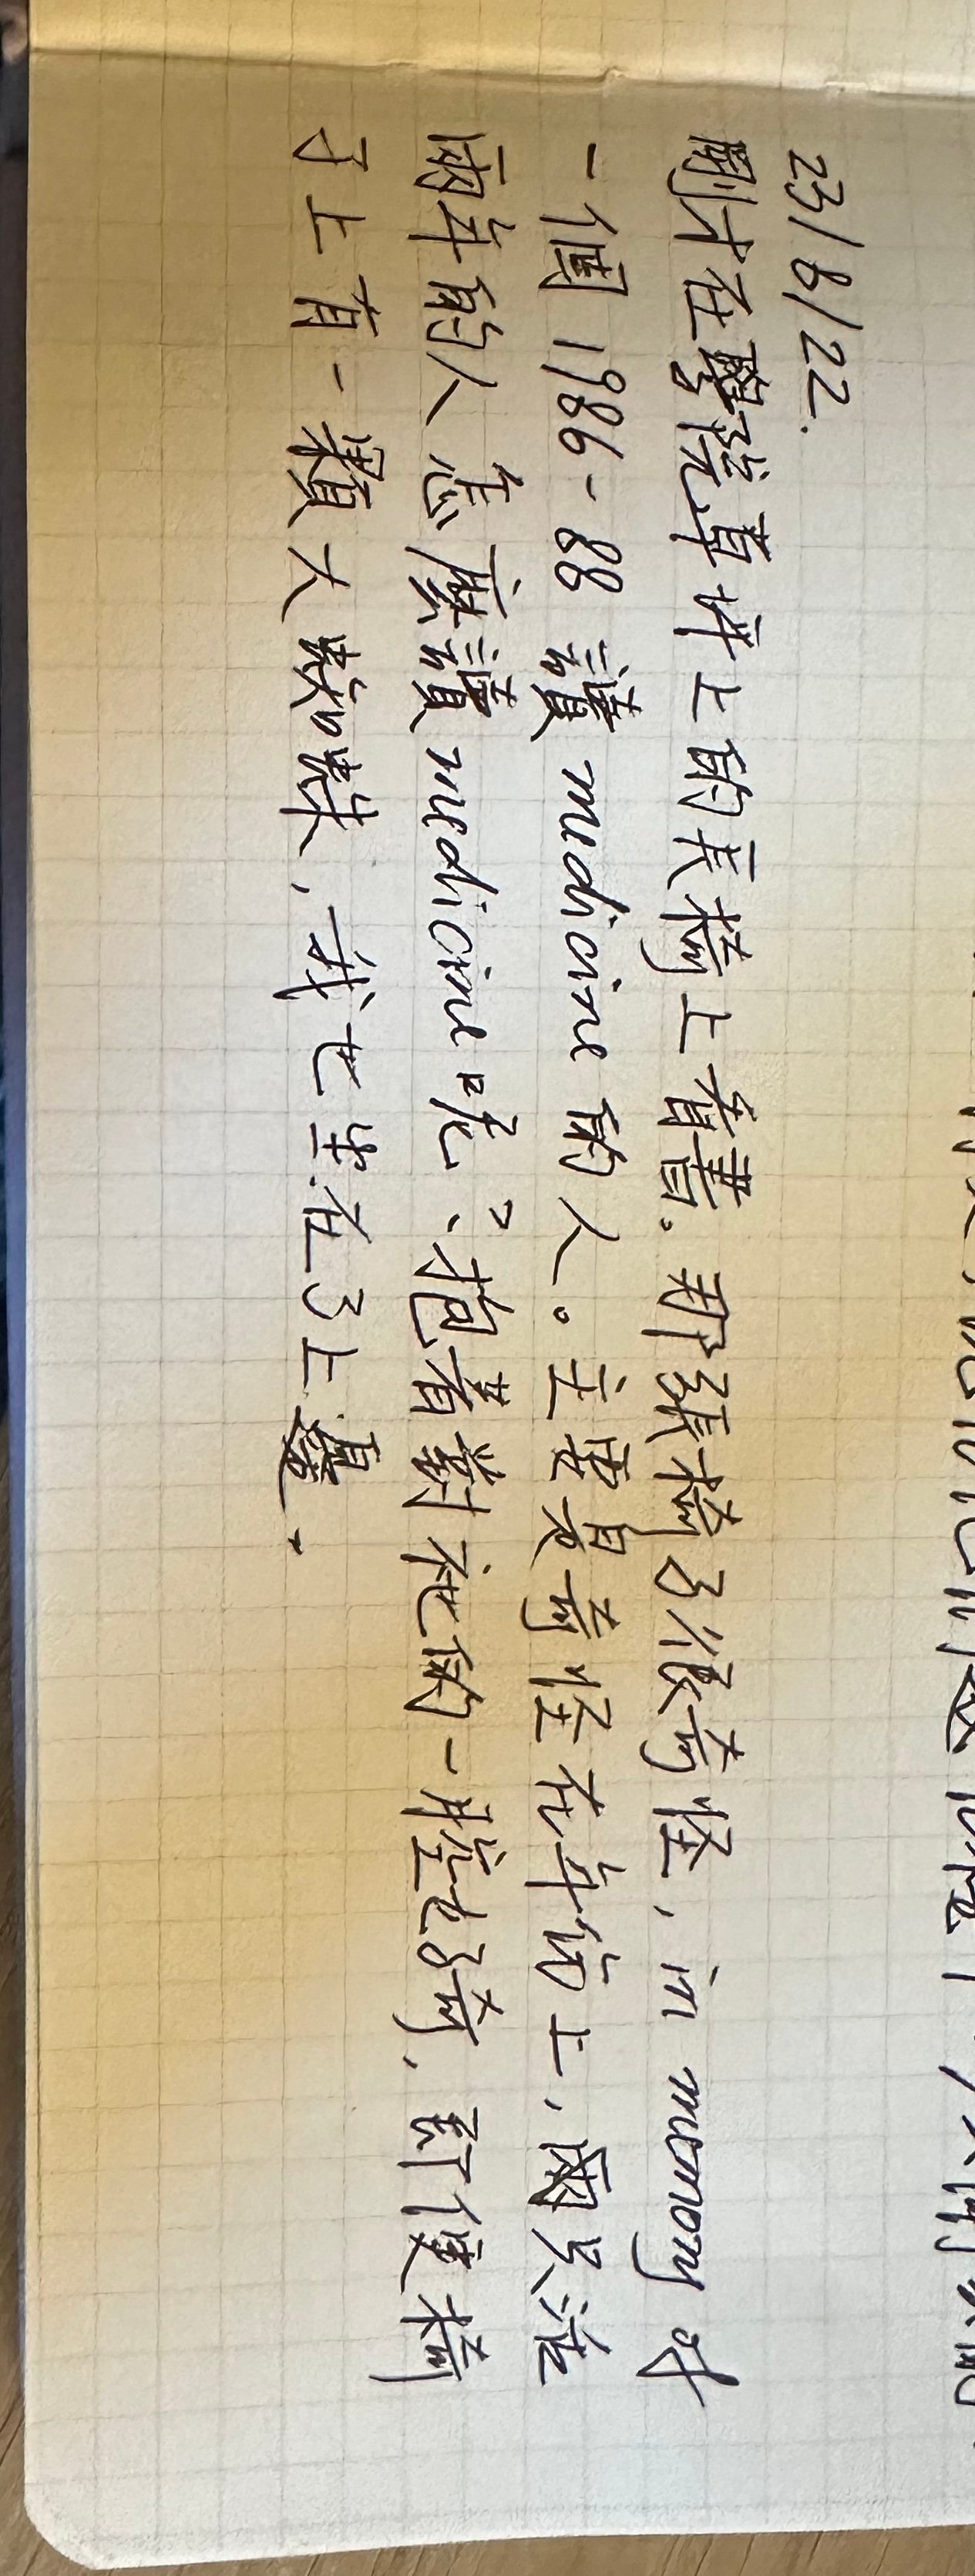 23/8/22.
剛才在醫院草坪上的長椅上看書。那張椅子很奇怪, in memory of
一個 1986-88 讀 medicine 的人。主要是奇怪在年份上, 因只活
兩年的人怎麼讀 medicine 呢？抱着對祂的一腔好奇, 即使椅
子上有一顆大蜘蛛, 我也坐在了上邊.